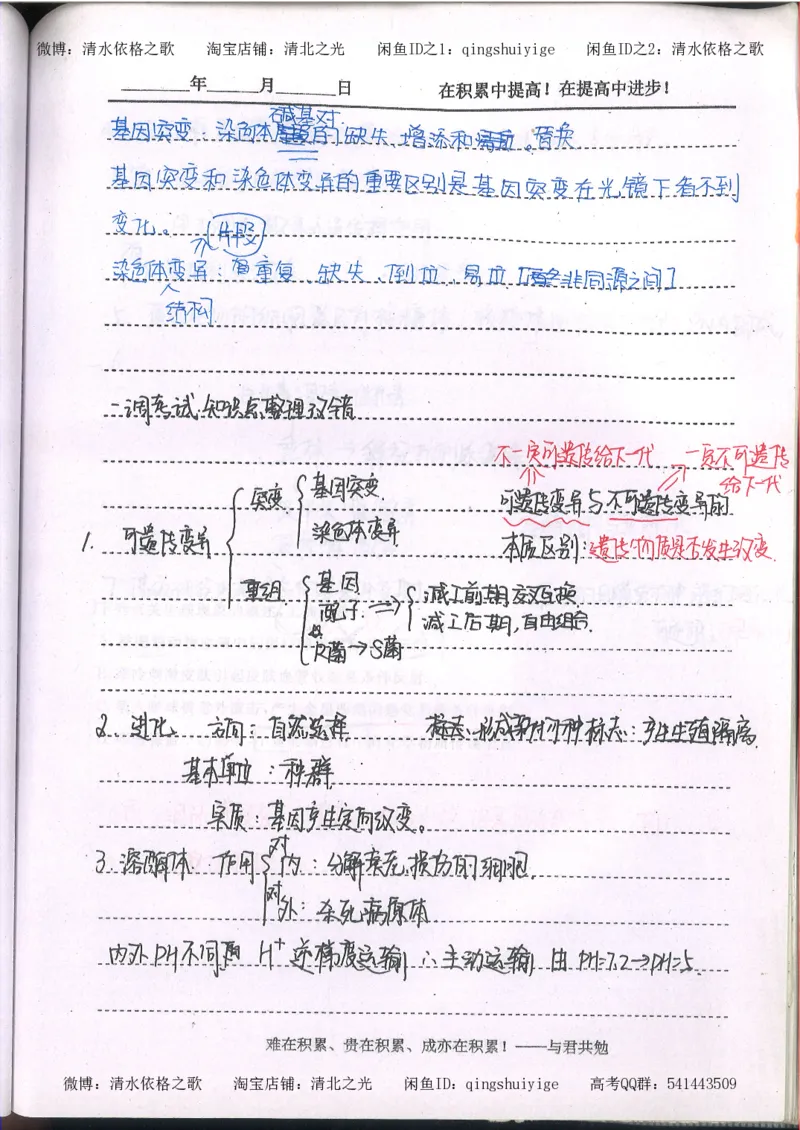 微博：清水依格之歌 淘宝店铺：清北之光 闲鱼ID之1：qingshuiyige 闲鱼ID之2：清水依格之歌
____年____月____日 在积累中提高！在提高中进步！
碱基对
基因突变：染色体的缺失、增添和替换
基因突变和染色体变异的重要区别是基因突变在光镜下看不到
变化。 片段
染色体变异：重复、缺失、倒位、易位［非同源之间］
结构
一调考试知识点整理改错
不一定可遗传给下一代 一定不可遗传
给下一代
1. 可遗传变异
突变 基因突变
染色体变异
可遗传变异与不可遗传变异的
本质区别：遗传物质是否发生改变
重组 基因
配子 ⇒ 减Ⅰ前期交叉互换
减Ⅰ后期，自由组合
R菌→S菌
2. 进化 方向：自然选择 标志：形成新物种标志：产生生殖隔离
基本单位：种群
实质：基因产生定向改变。
3. 溶酶体 作用 对内：分解衰老、损伤的细胞
对外：杀死病原体
内外PH不同 H⁺逆梯度运输 ∴主动运输 由PH=7.2→PH=5
难在积累、贵在积累、成亦在积累！——与君共勉
微博：清水依格之歌 淘宝店铺：清北之光 闲鱼ID：qingshuiyige 高考QQ群：541443509